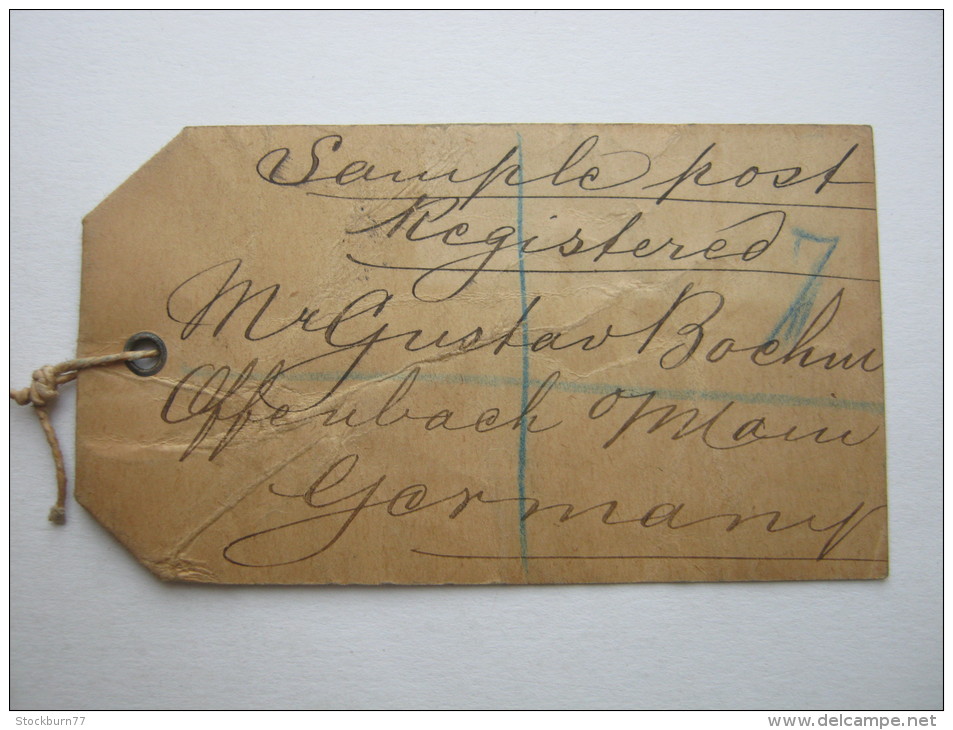 Sample post
Registered
7
Mr Gustav Boehm
Offenbach o/Main
Germany
Stockburn77
http://www.delcampe.net